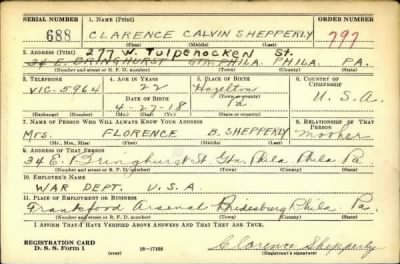 SERIAL NUMBER 1. NAME (Print) ORDER NUMBER
688 CLARENCE CALVIN SHEPPERLY 797
(First) (Middle) (Last)
277 W. Tulpehocken St.
2. ADDRESS (Print)
34 E. BRINGHURST GTN. PHILA. PHILA. PA.
(Number and street or R. F. D. number) (Town) (County) (State)
3. TELEPHONE 4. AGE IN YEARS 5. PLACE OF BIRTH 6. COUNTRY OF CITIZENSHIP
VIC. 5964 22 Hazelton U. S. A.
DATE OF BIRTH (Town or county)
4-27-18 Pa
(Exchange) (Number) (Mo.) (Day) (Yr.) (State or country)
7. NAME OF PERSON WHO WILL ALWAYS KNOW YOUR ADDRESS 8. RELATIONSHIP OF THAT PERSON
Mrs. FLORENCE B. SHEPPERLY mother
(Mr., Mrs., Miss) (First) (Middle) (Last)
9. ADDRESS OF THAT PERSON
34 E. Bringhurst St Gtn. Phila Phila Pa
(Number and street or R. F. D. number) (Town) (County) (State)
10. EMPLOYER'S NAME
WAR DEPT. U.S.A.
11. PLACE OF EMPLOYMENT OR BUSINESS
Frankford Arsenal Bridesburg Phila. Pa.
(Number and street or R. F. D. number) (Town) (County) (State)
I AFFIRM THAT I HAVE VERIFIED ABOVE ANSWERS AND THAT THEY ARE TRUE.
REGISTRATION CARD
D. S. S. Form 1 16-17105 Clarence Shepperly
(Registrant's signature)